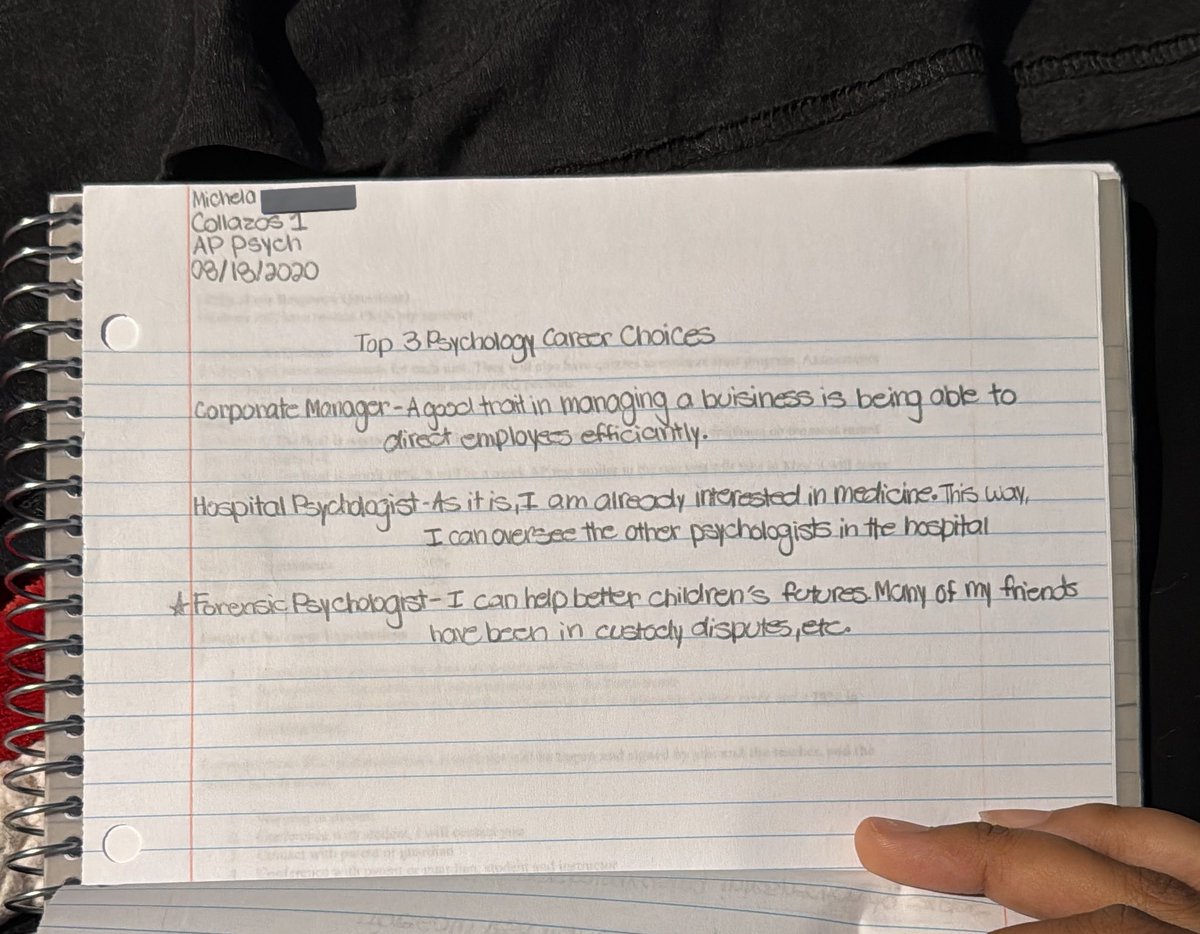 Michela
Collazos 1
AP Psych
08/18/2020
Top 3 Psychology Career Choices
Corporate Manager-A good trait in managing a buisiness is being able to
direct employees efficiantly.
Hospital Psychologist-As it is, I am already interested in medicine. This way,
I can oversee the other psychologists in the hospital
☆Forensic Psychologist-I can help better children's futures. Many of my friends
have been in custody disputes, etc.